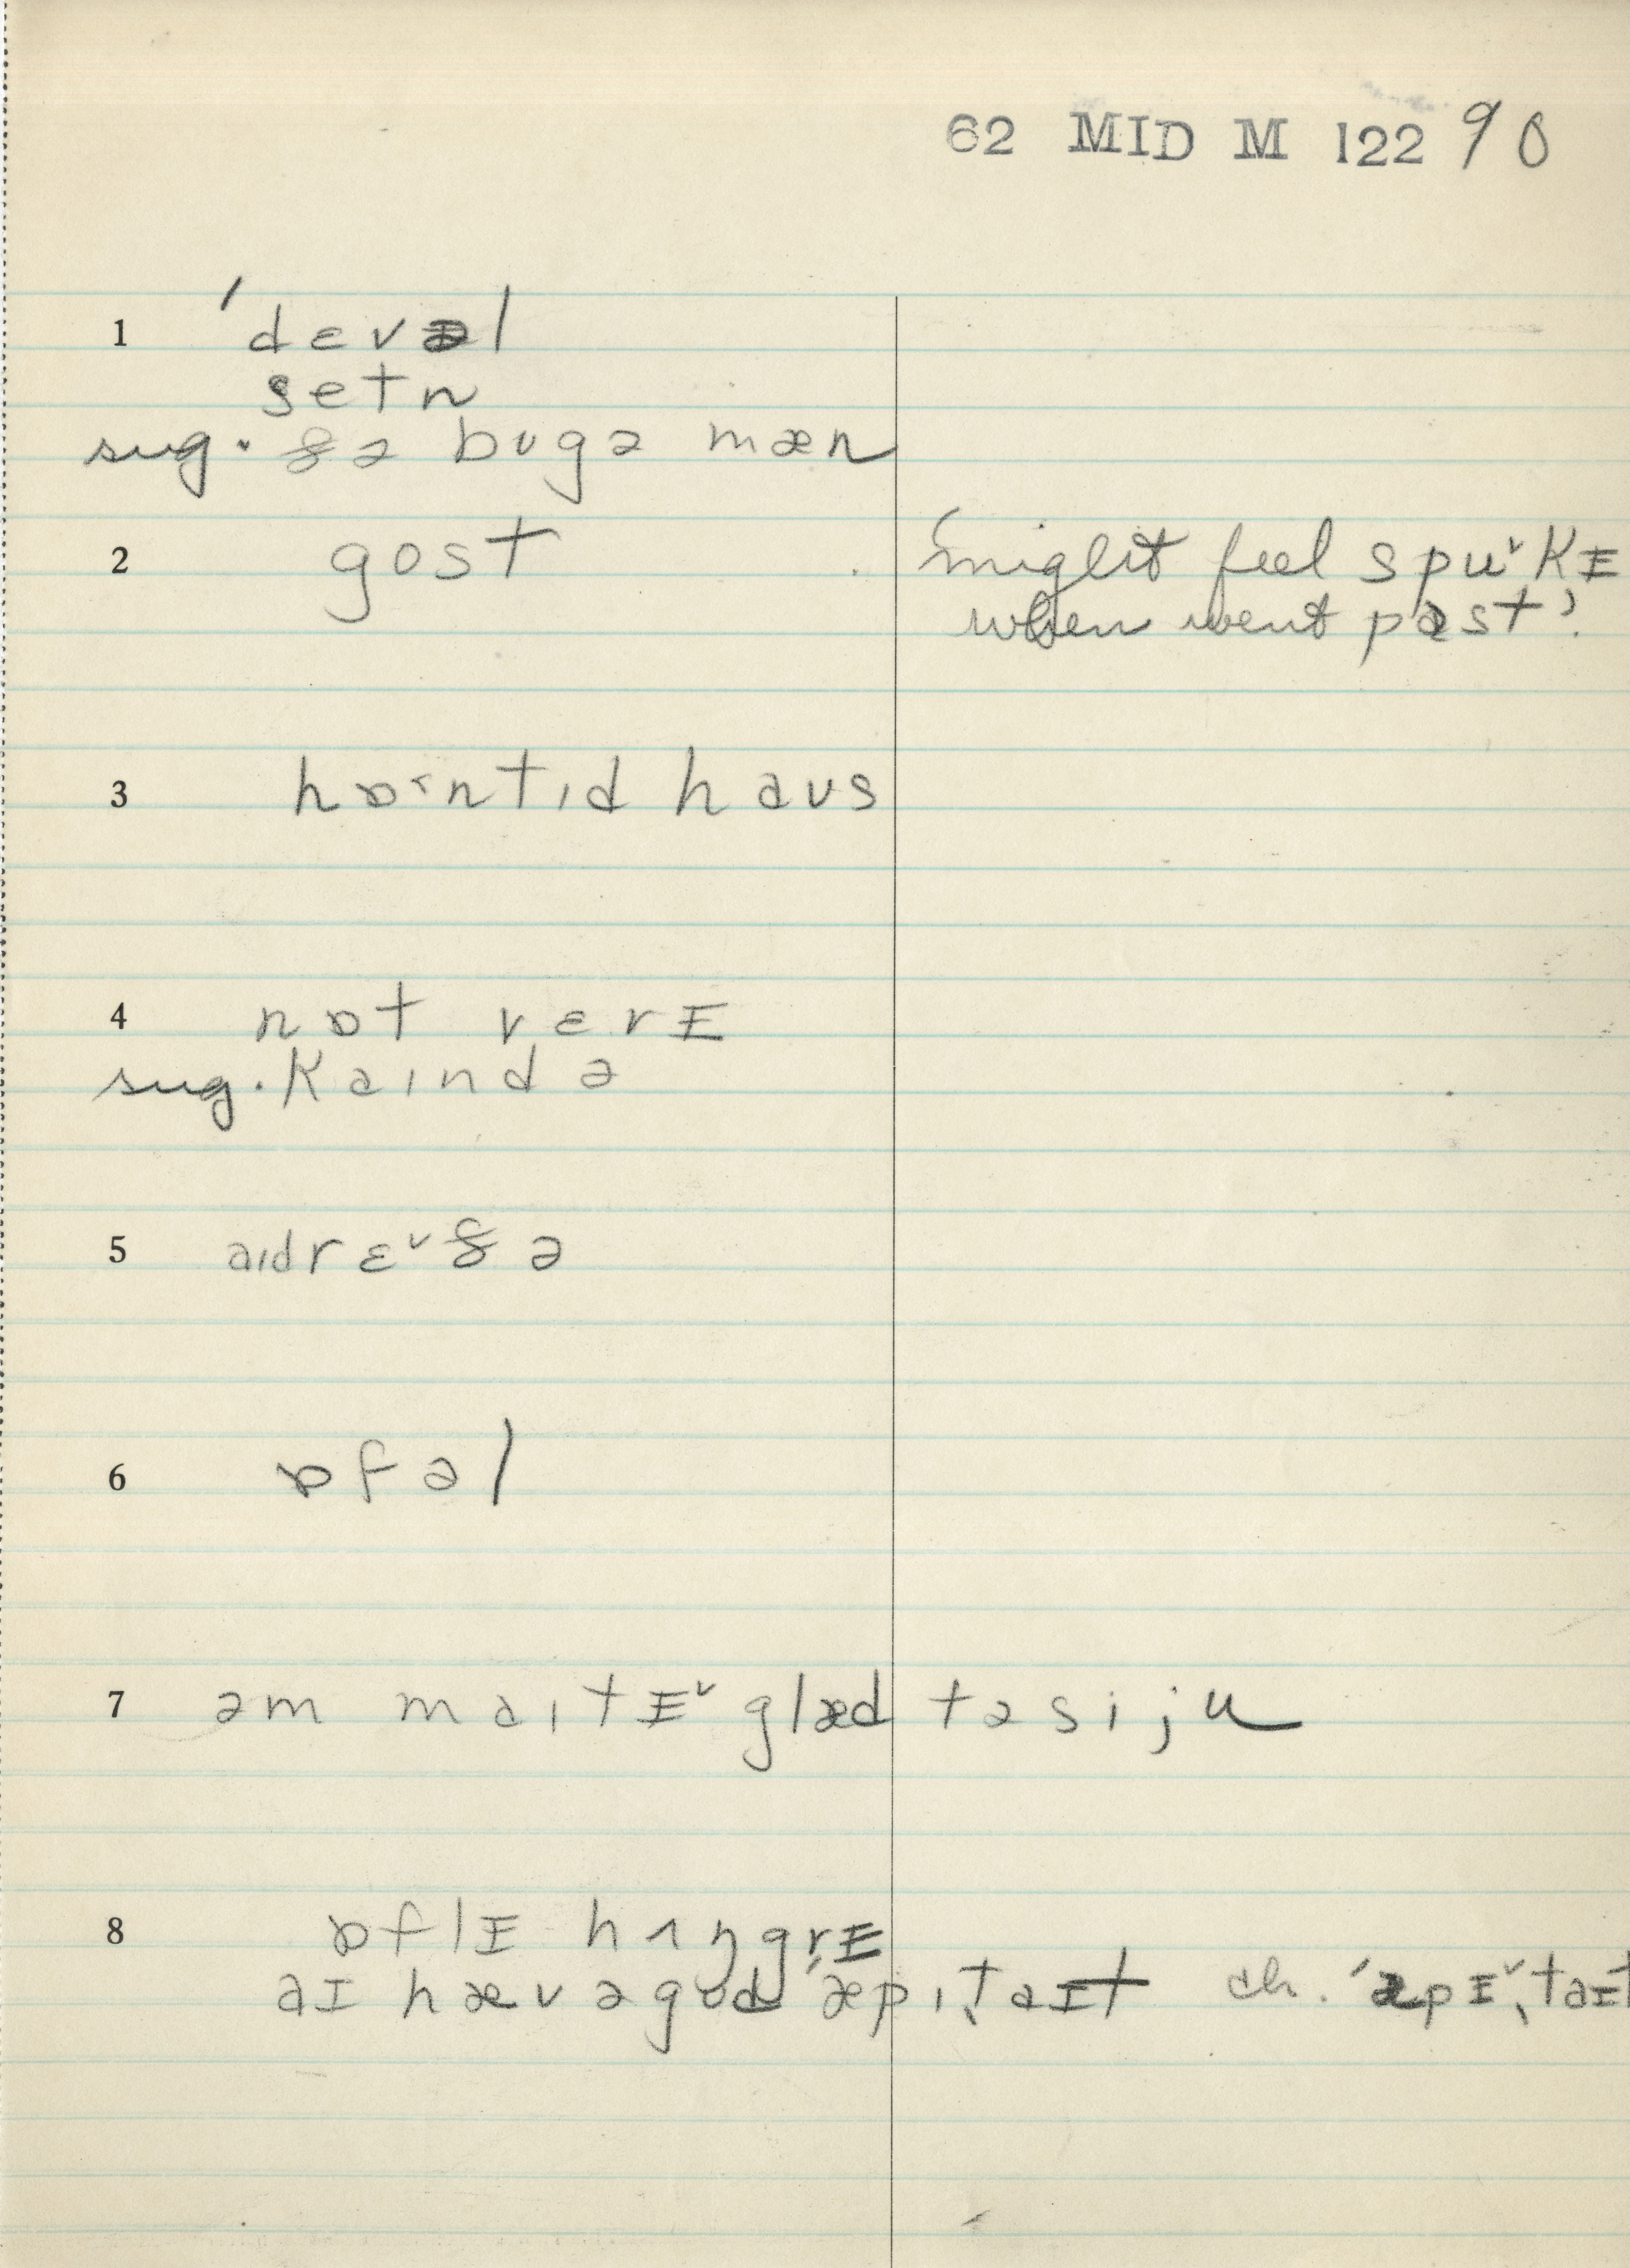 62 MID M 122 90
1 ˈdɛvəl
setn
sug. ðə bugə mæn
2 gost 'might feel spu˅kɪ
when went past'.
3 hɒ˂ntɪd haʊs
4 nɒt vɛrɪ
sug. kaɪndə
5 aɪdrɛ˅ðə
6 ɒfəl
7 əm maɪtɪ˅ glæd təsiju
8 ɒflɪ hʌŋgrɪ
aɪ hæv əgʊd ˈæpɪˌtaɪt ch. ˈæpɪ˅ˌtaɪt